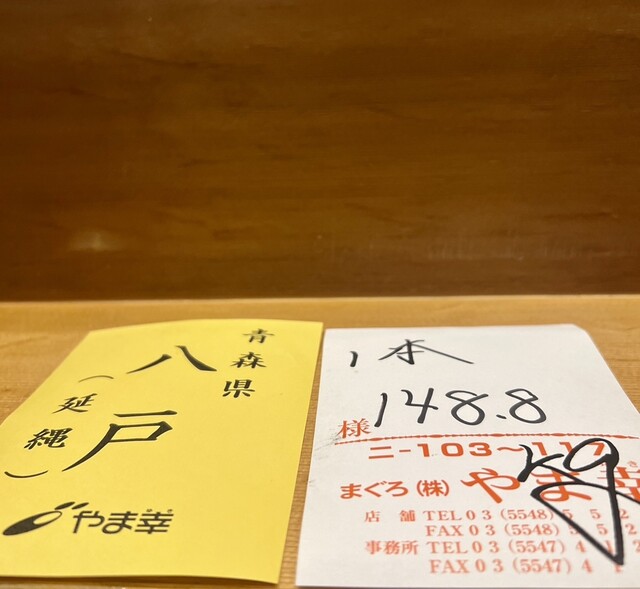 青森県
八戸
（延縄）
やま幸
1本
148.8
kg
様
ニ-103～117
まぐろ（株）やま幸
店舗 TEL03（5548）5 5 2
FAX03（5548）5 5 2
事務所 TEL03（5547）4 1 2
FAX03（5547）4 1